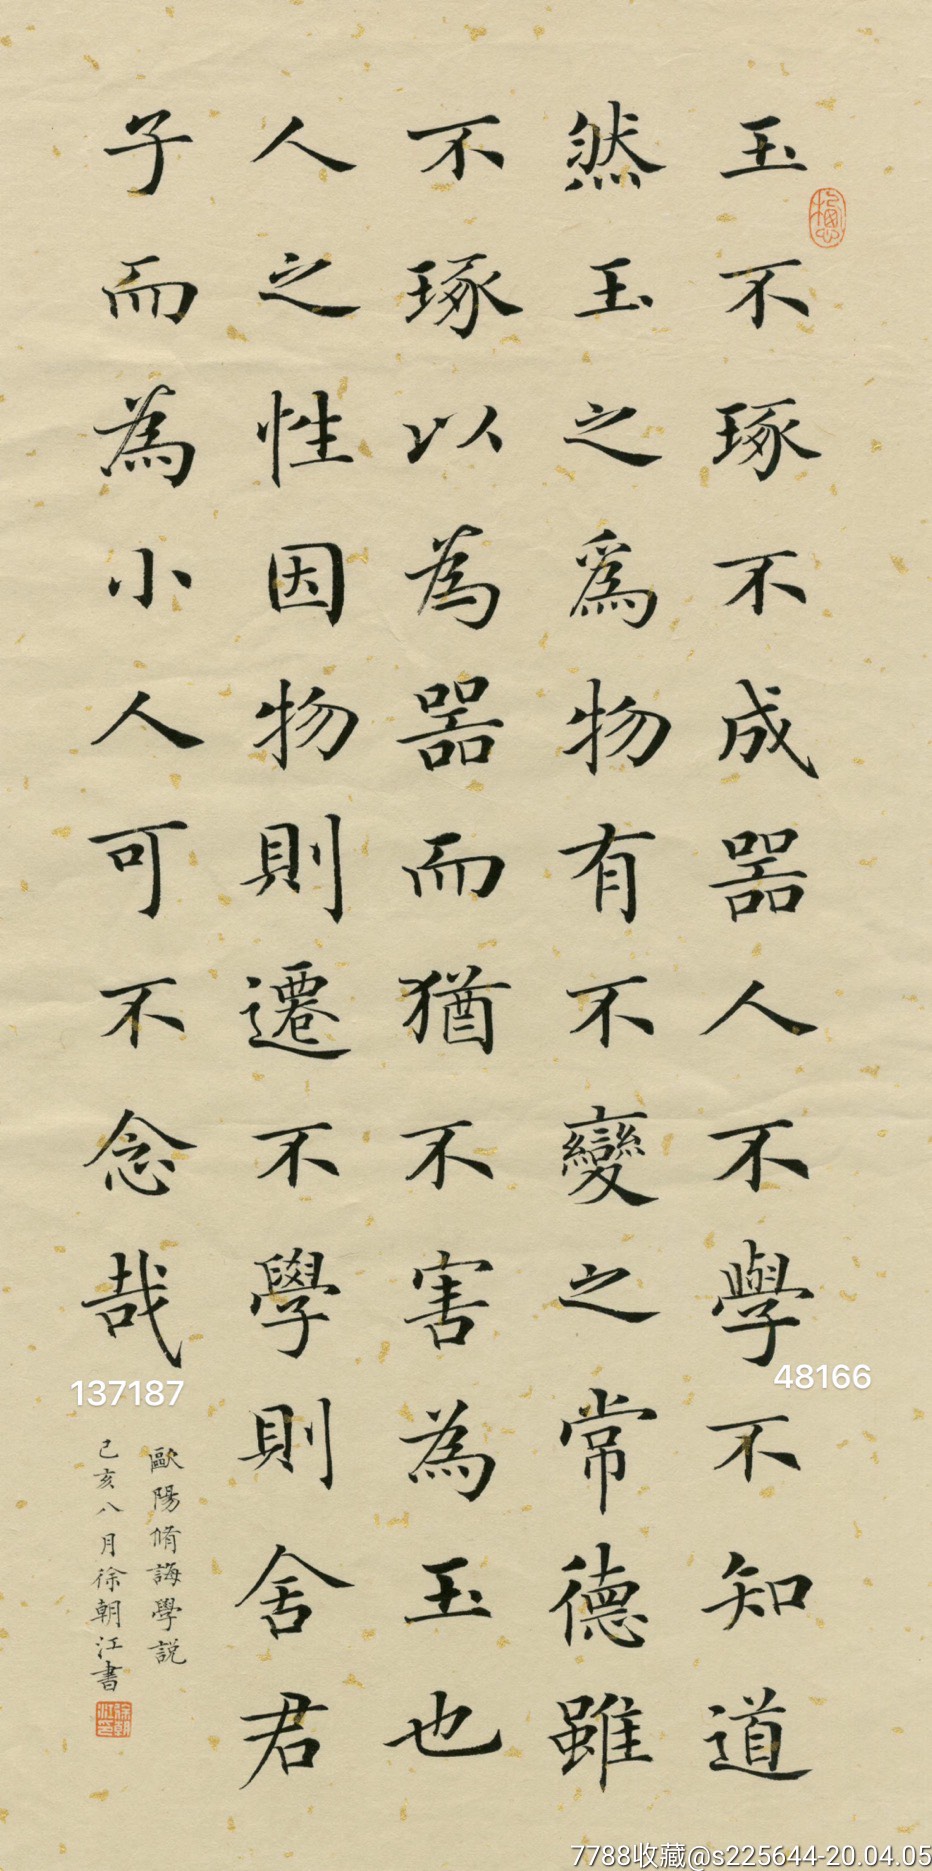 玉不琢不成器人不學不知道
然玉之爲物有不變之常德雖
不琢以為器而猶不害為玉也
人之性因物則遷不學則舍君
子而為小人可不念哉
歐陽脩誨學説
己亥八月徐朝江書
徐朝江印
137187
48166
7788收藏@s225644-20.04.05